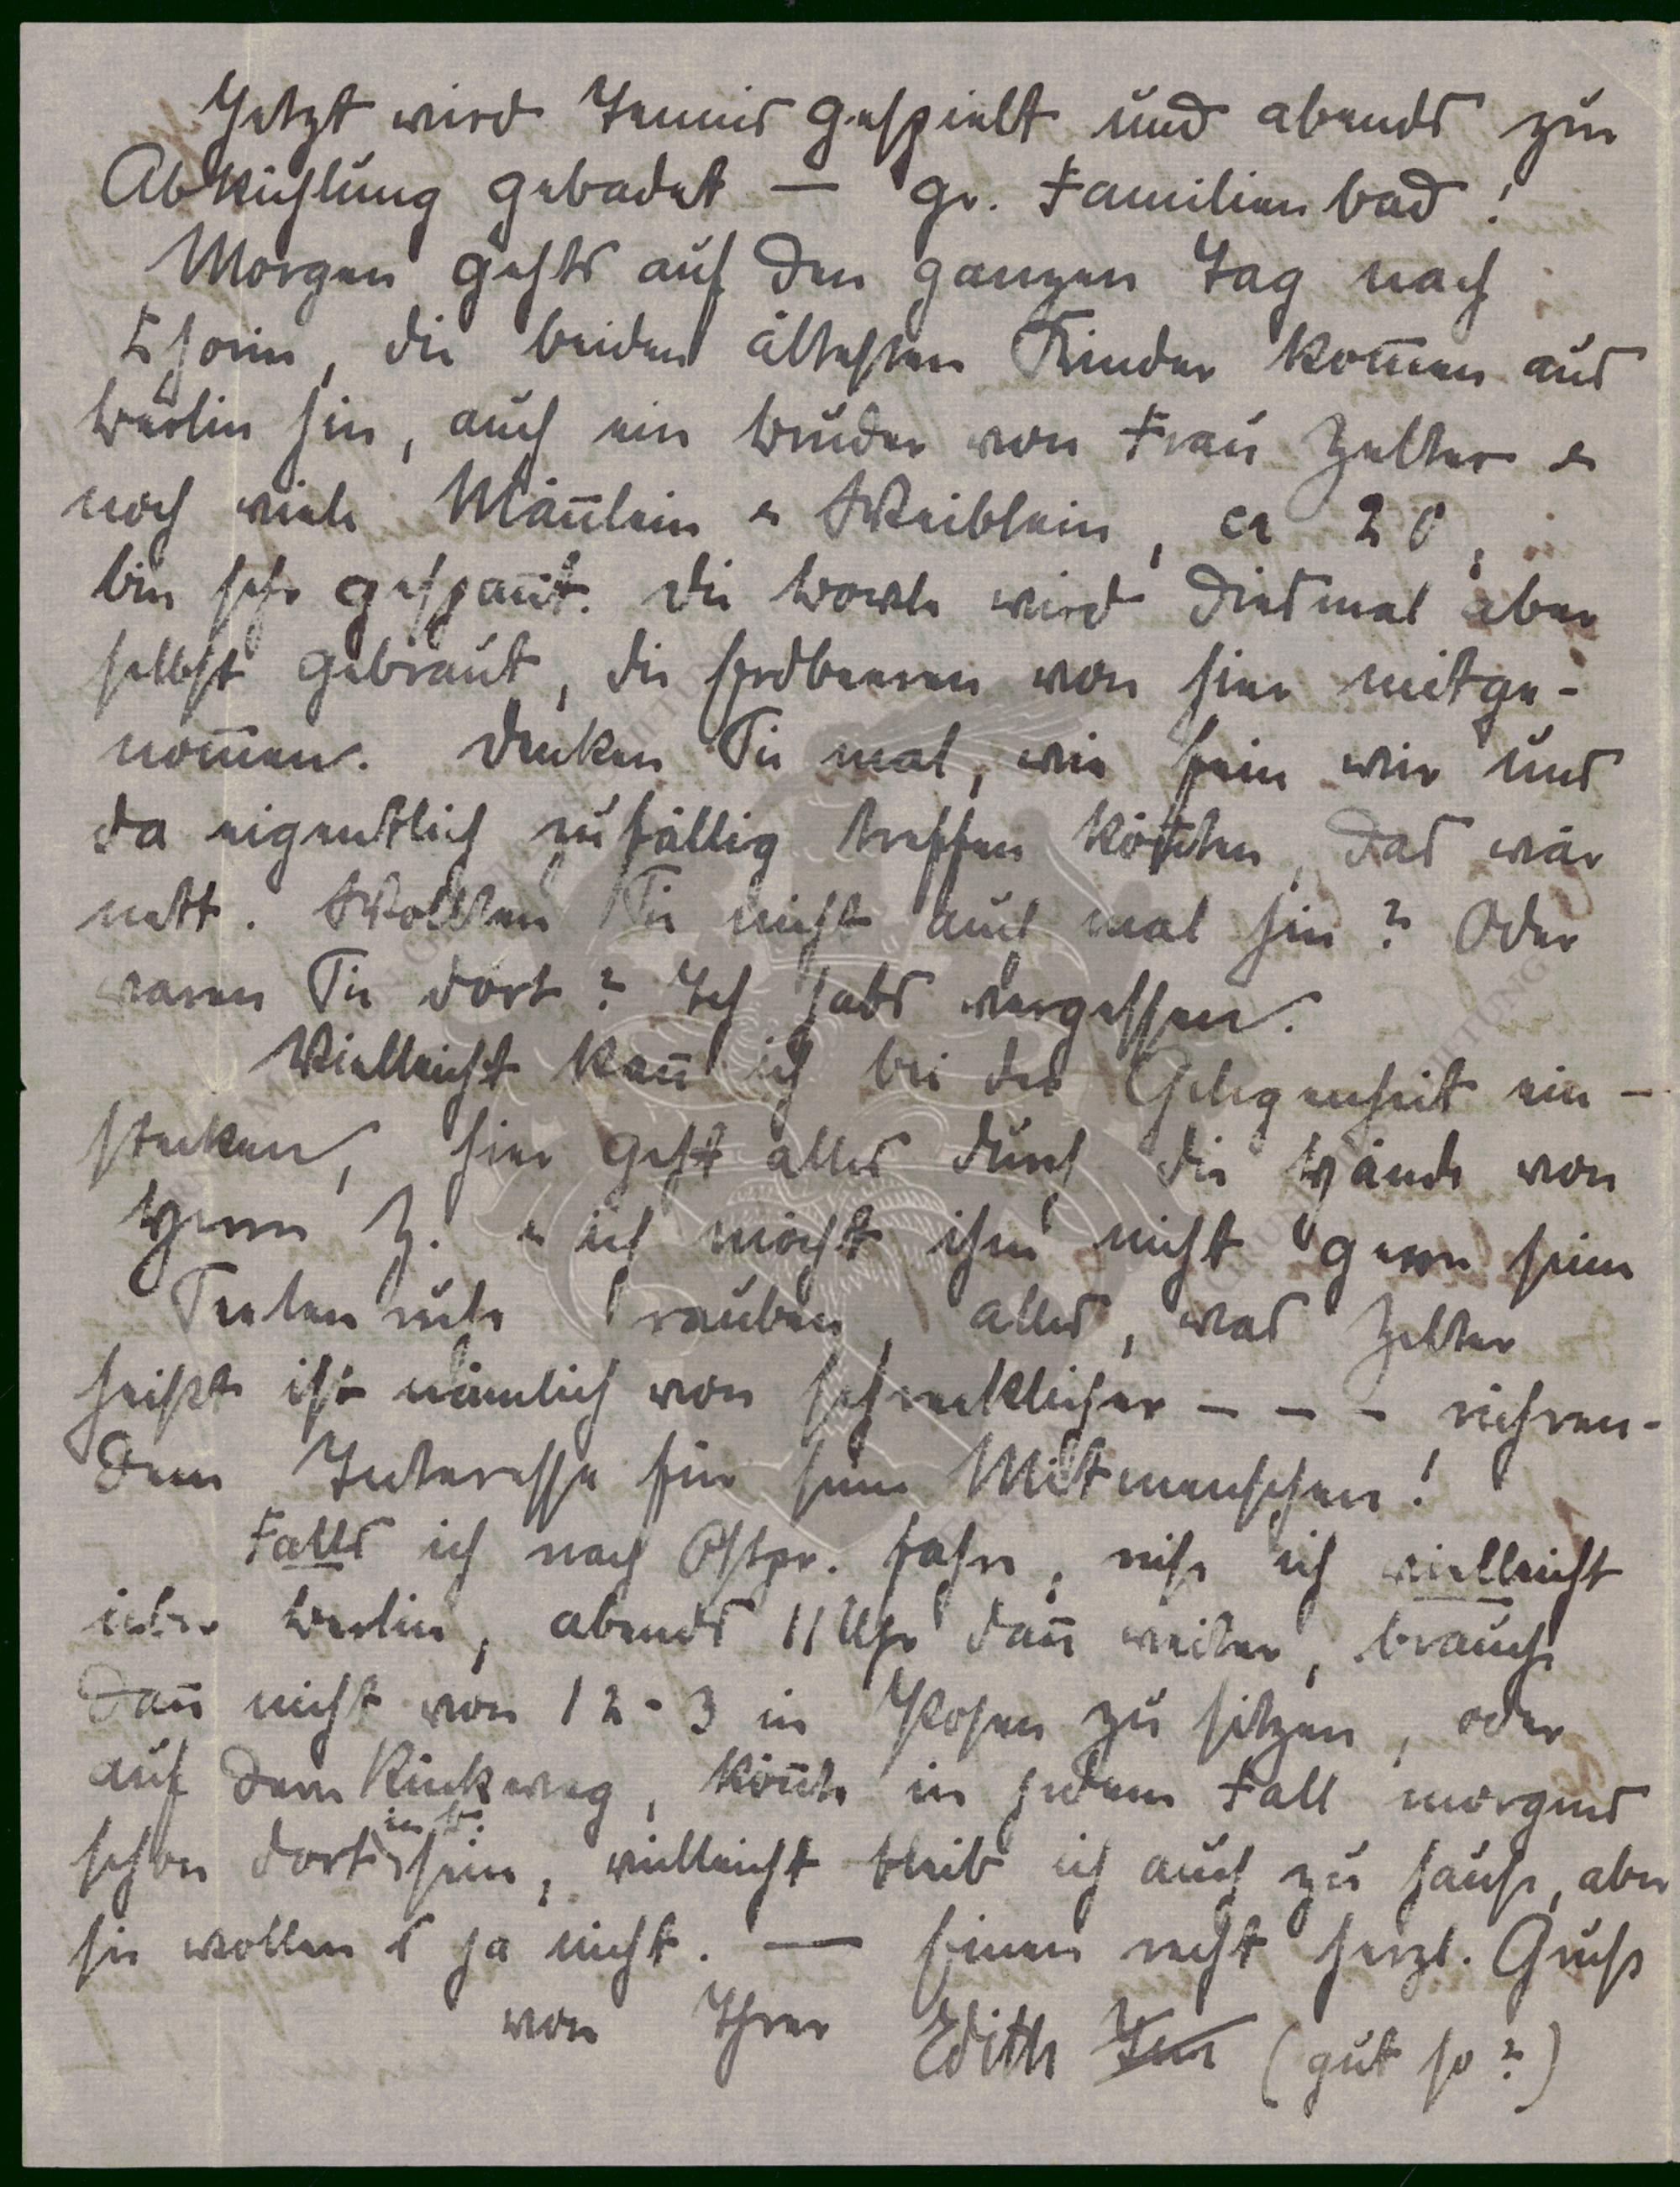 Jetzt wird Tennis gespielt und abends zur
Abkühlung gebadet — gr. Familienbad!
Morgen gehts auf den ganzen Tag nach
Chorin, die beiden ältesten Kinder kom̅en aus
Berlin hin, auch ein Bruder von Frau Zelter &
noch viele Män̅lein & Weiblein, ca 20,
bin sehr gespan̅t. Die Bowle wird diesmal aber
selbst gebraut, die Erdbeeren von hier mitge-
nom̅en. Denken Sie mal, wie fein wir uns
da eigentlich zufällig treffen kön̅ten, das wär
nett. Wollten Sie nicht auch mal hin? Oder
waren Sie dort? Ich habs vergessen.
Vielleicht kan̅ ich bei der Gelegenheit ein-
stecken, hier geht alles durch die Hände von
Herrn Z. & ich möcht ihm nicht gern seine
Seelenruhe rauben, alles, was Zelter
heißt ist nämlich von schrecklicher - - - rühren-
dem Interesse für seine Mitmenschen!
Falls ich nach Ostpr. fahre, reise ich vielleicht
über Berlin, abends 11 Uhr dan̅ weiter, brauche
dan̅ nicht von 12-3 in Posen zu sitzen, oder
auf dem Rückweg, kön̅te in jedem Fall morgens
in B.
schon dort sein, vielleicht bleib ich auch zu Hause, aber
sie wollen's ja nicht. — Einen recht herzl. Gruß
von Ihrer Edith (gut so?)